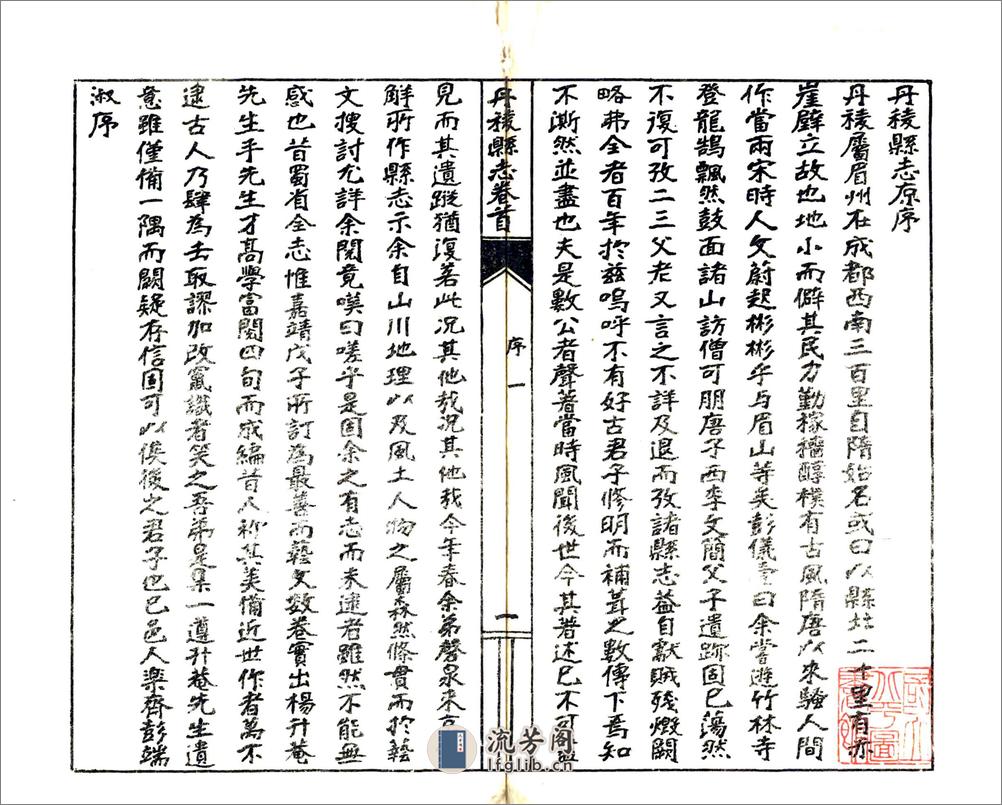 丹稜縣志原序
丹稜屬眉州在成都西南三百里自隋始名或曰以縣北二十里有赤
崖壁立故也地小而僻其民力勤稼穡醇樸有古風隋唐以來騷人間
作當兩宋時人文蔚起彬彬乎与眉山等矣彭儀壹曰余嘗遊竹林寺
登龍鵠飄然鼓面諸山訪僧可朋唐子西李文簡父子遺跡固已蕩然
不復可攷二三父老又言之不詳及退而攷諸縣志益自獻賊殘燬闕
略弗全者百年於茲嗚呼不有好古君子修明而補葺之數傳下焉知
不漸然並盡也夫是數公者聲著當時風聞後世今其著述已不可盡
丹稜縣志卷首
序
一
一
見而其遺蹤猶復若此況其他哉況其他哉今年春余弟磬泉來京
觧所作縣志示余自山川地理以及風土人物之屬森然條貫而於藝
文搜討尤詳余閱竟嘆曰嗟乎是固余之有志而未逮者雖然不能無
感也昔蜀省全志惟嘉靖戊子所訂為最善而藝文数卷實出楊升菴
先生手先生才髙學富閱四旬而成編昔人称其美備近世作者萬不
逮古人乃肆為去取謬加改竄識者笑之吾弟是集一遵升菴先生遺
意雖僅備一隅而闕疑存信固可以俟後之君子也已邑人樂齊彭端
淑序
流芳阁
lfglib.cn